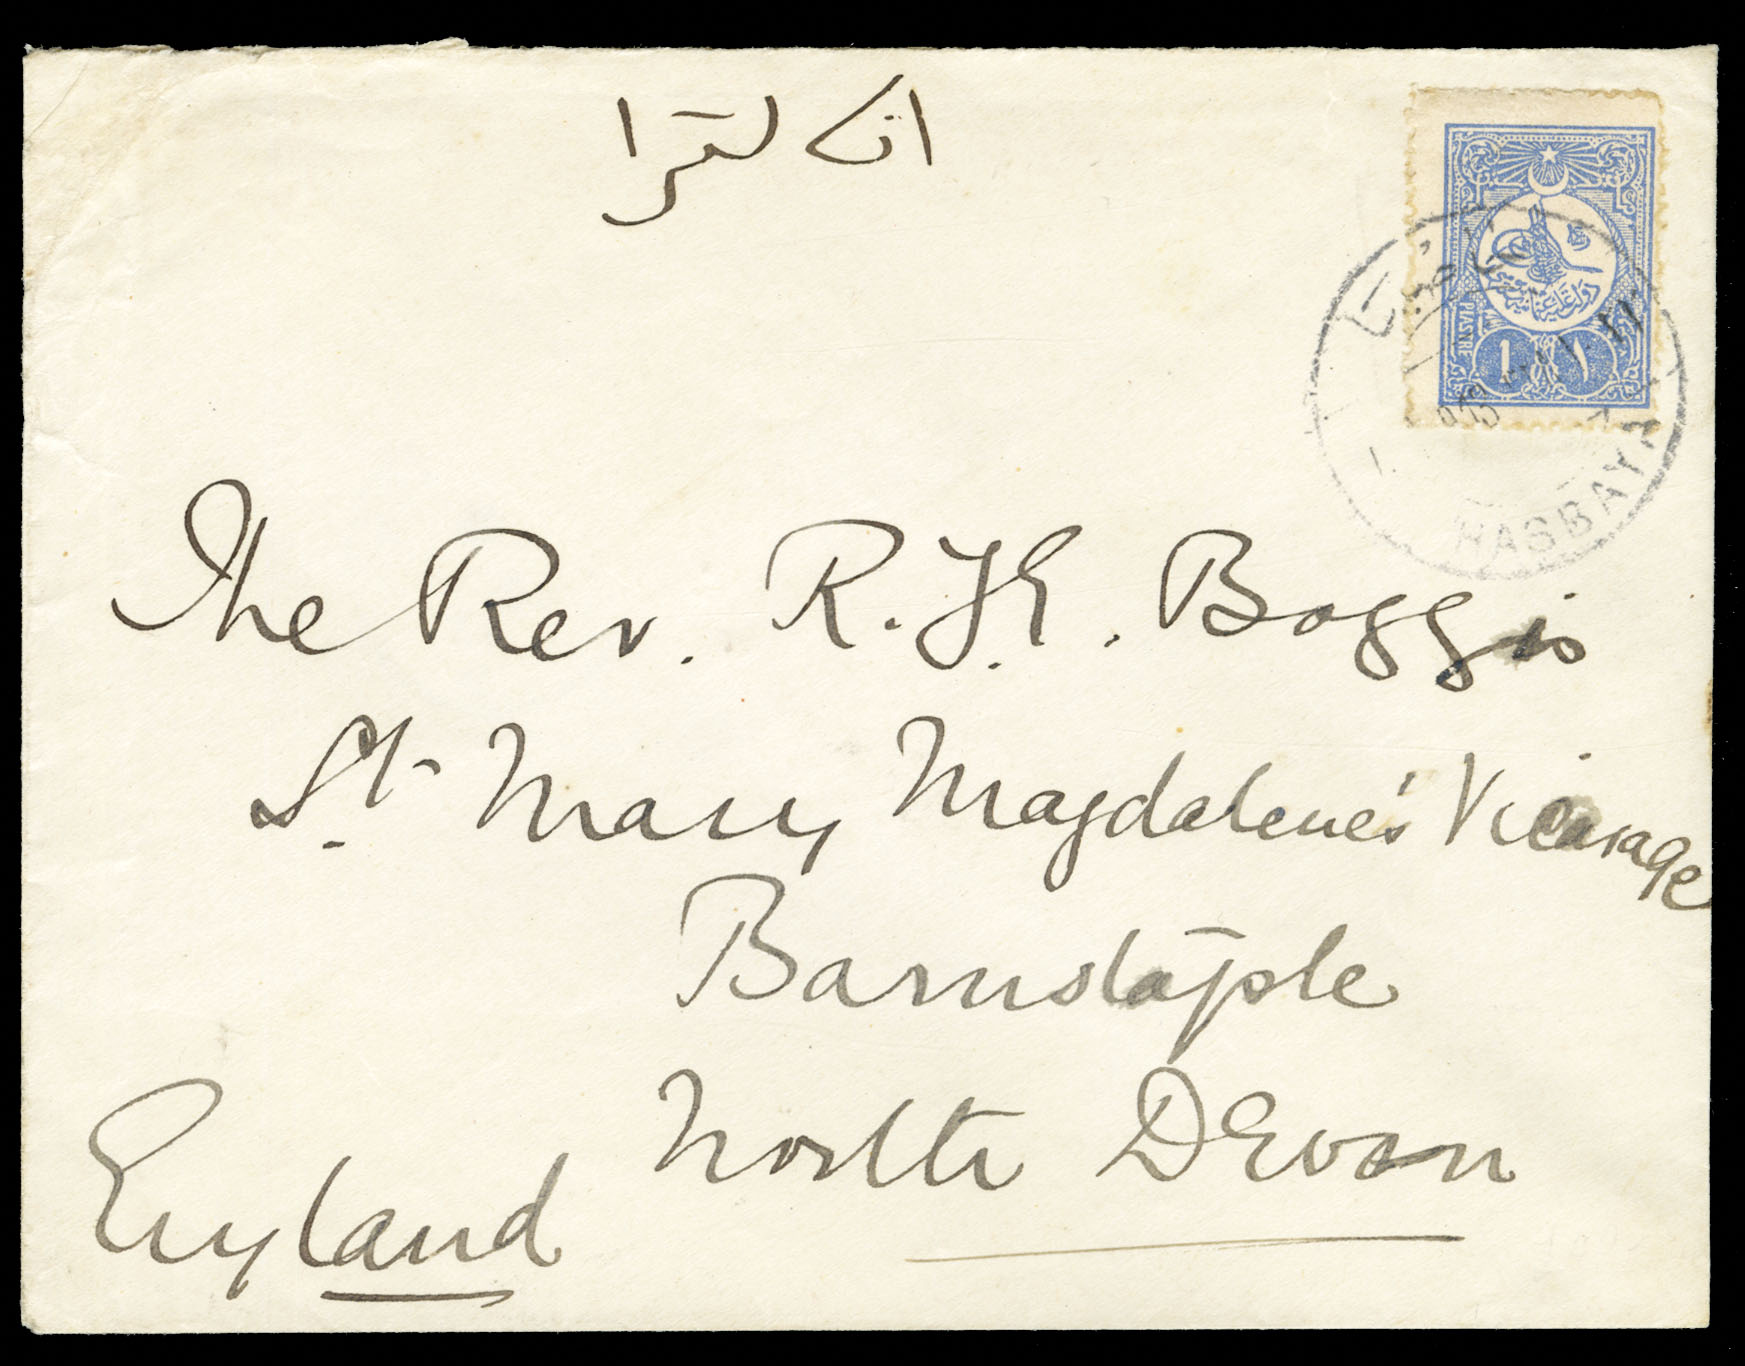 انكلترا
PIASTRE
1 ١
HASBAYA
The Rev. R. J. E. Boggis
St. Mary Magdalene's Vicarage
Barnstaple
North Devon
England